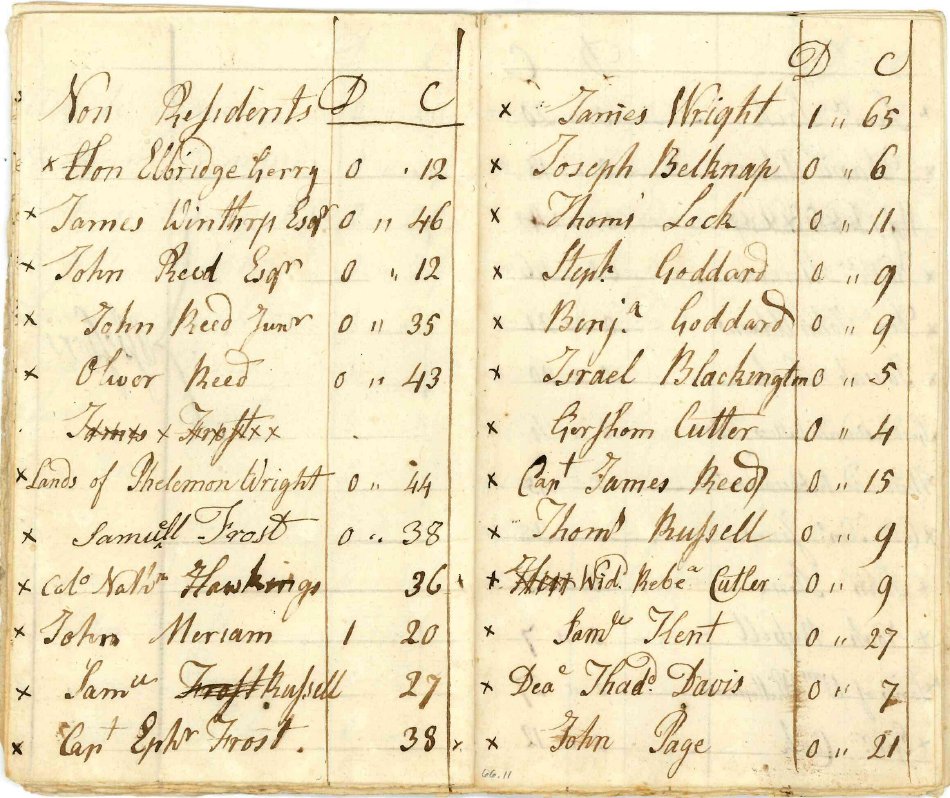 Non Residents D C
x Hon Elbridge Gerry 0 " 12
x James Winthrp Esqr 0 " 46
x John Reed Esqr 0 " 12
x John Reed Junr 0 " 35
x Oliver Reed 0 " 43
James Frost
x Lands of Phelemon Wright 0 " 44
x Samuell Frost 0 " 38
x Colo Nathl Hawkings 36
x John Meriam 1 20
x Samll Frost Russell 27
x Capt Ephr Frost. 38
D C
x James Wright 1 " 65
x Joseph Belknap 0 " 6
x Thoms Lock 0 " 11
x Steph. Goddard 0 " 9
x Benja Goddard 0 " 9
x Israel Blackington 0 " 5
x Gershom Cutter 0 " 4
x Capt James Reed 0 " 15
x Thoms Russell 0 " 9
x Wid. Rebea Cutler 0 " 9
x Samll Kent 0 " 27
x Deac Thadd Davis 0 " 7
x John Page 0 " 21
66.11